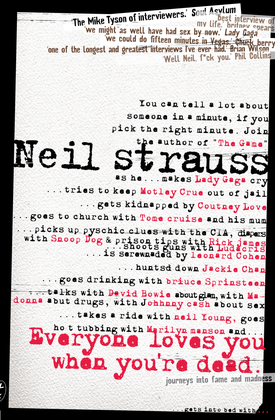 'The Mike Tyson of interviewers.' Soul Asylum
best interview of
my life. britney spears
'we might as well have had sex by now.' Lady Gaga
we could do fifteen minutes in Vegas. Chuck berry
'one of the longest and greatest interviews I've ever had. Brian Wilson
'Well Neil, f*ck you. Phil Collins
You can tell a lot about
someone in a minute, if you
pick the right minute. Join
the author of "The Game"
Neil strauss
as he...makes Lady Gaga cry
...tries to keep Motley Crue out of jail
...gets kidnapped by Coutney Love
...goes to church with Tome cruise and his mum
...picks up pyschic clues with the CIA, diapers
with Snoop Dog & prison tips with Rick james
...shoots guns with Ludacris
...is serenaded by leonard Cohen
...huntsd down Jackie Chan
...goes drinking with bruice Sprinsteen
...talks with David Bowie about gism, with Ma-
donna abut drugs, with Johnny cash about sex
...takes a ride with neil Young, goes
hot tubbing with Marilyn manson and...
Everyone loves you
when you're dead.
journeys into fame and madness
gets into bed with